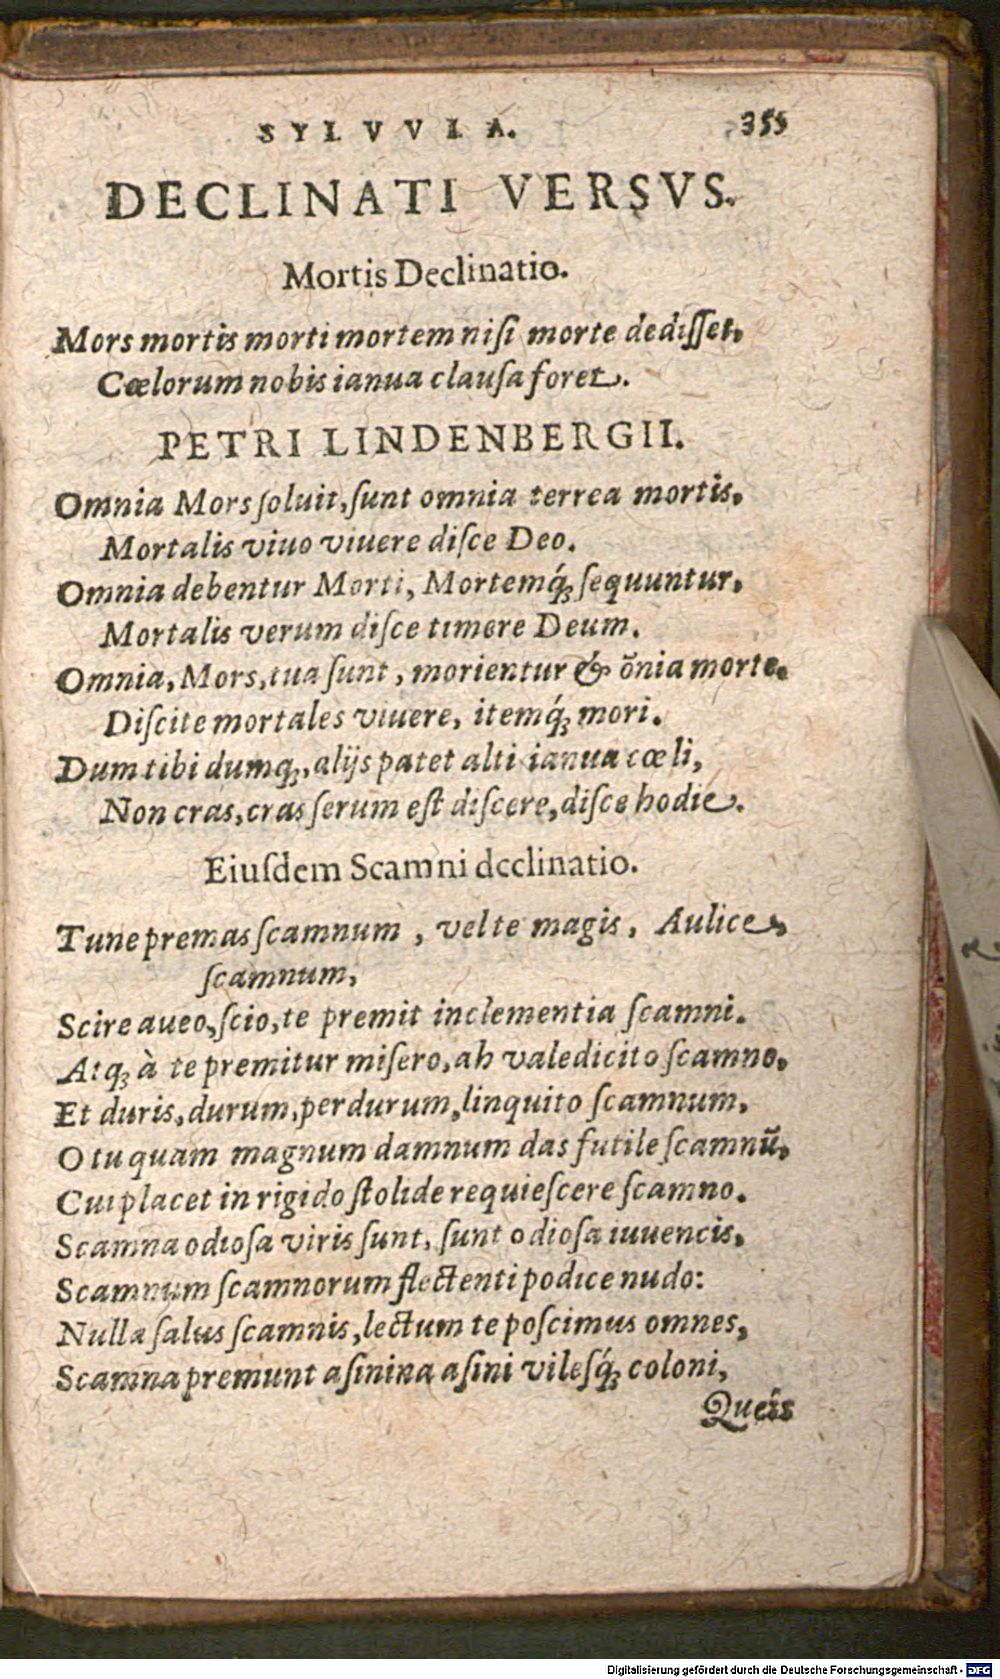 SYLVVLA. 355
DECLINATI VERSVS.
Mortis Declinatio.
Mors mortis morti mortem niſi morte dediſſet,
Cœlorum nobis ianua clauſa foret.
PETRI LINDENBERGII.
Omnia Mors ſoluit, ſunt omnia terrea mortis,
Mortalis viuo viuere diſce Deo.
Omnia debentur Morti, Mortemq́ꝫ ſequuntur,
Mortalis verum diſce timere Deum.
Omnia, Mors, tua ſunt, morientur & õnia morte.
Diſcite mortales viuere, itemq́ꝫ mori.
Dum tibi dumqꝫ, alijs patet alti ianua cœli,
Non cras, cras ſerum eſt diſcere, diſce hodie.
Eiuſdem Scamni declinatio.
Tune premas ſcamnum, vel te magis, Aulice,
ſcamnum,
Scire aueo, ſcio, te premit inclementia ſcamni.
Atqꝫ à te premitur miſero, ah valedicito ſcamno,
Et duris, durum, per durum, linquito ſcamnum,
O tu quam magnum damnum das futile ſcamnũ,
Cui placet in rigido ſtolide requieſcere ſcamno.
Scamna odioſa viris ſunt, ſunt odioſa iuuencis,
Scamnum ſcamnorum flectenti podice nudo:
Nulla ſalus ſcamnis, lectum te poſcimus omnes,
Scamna premunt aſinina aſini vileſq́ꝫ coloni,
Queis
Digitalisierung gefördert durch die Deutsche Forschungsgemeinschaft - DFG